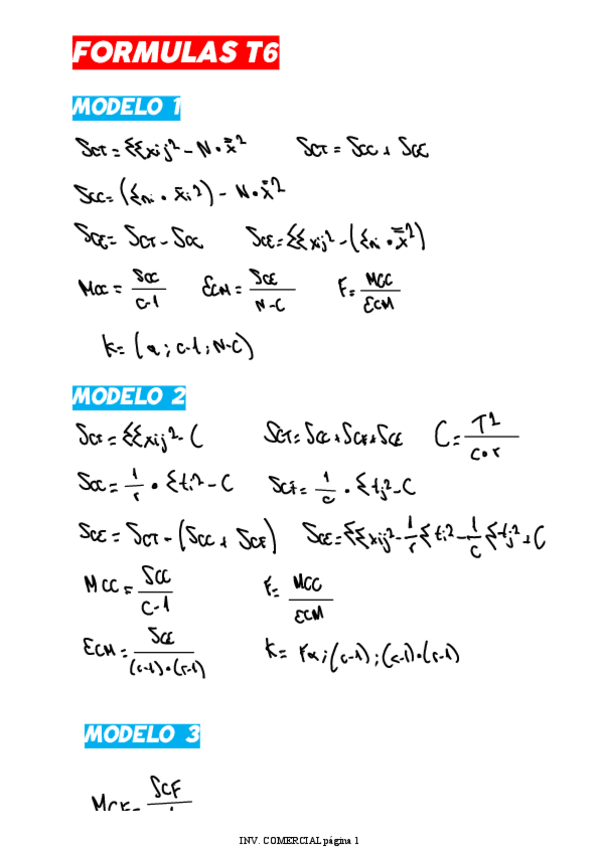 FORMULAS T6
MODELO 1
SCT = ΣΣxij² - N · x̄̄²   SCT = SCC + SCE
SCC = (Σni · x̄i²) - N · x̄̄²
SCE = SCT - SCC   SCE = ΣΣxij² - (Σni · x̄̄²)
MCC = SCC / C-1   ECM = SCE / N-C   F = MCC / ECM
k = (α ; c-1 ; N-C)
MODELO 2
SCT = ΣΣxij² - C   SCT = SCC + SCF + SCE   C = T² / C · r
SCC = 1/r · Σti² - C   SCF = 1/c · Σtj² - C
SCE = SCT - (SCC + SCF)   SCE = ΣΣxij² - 1/r Σti² - 1/c Σtj² + C
MCC = SCC / C-1   F = MCC / ECM
ECM = SCE / (c-1) · (r-1)   k = Fα ; (c-1) ; (c-1) · (r-1)
MODELO 3
MCF = SCF
INV. COMERCIAL página 1